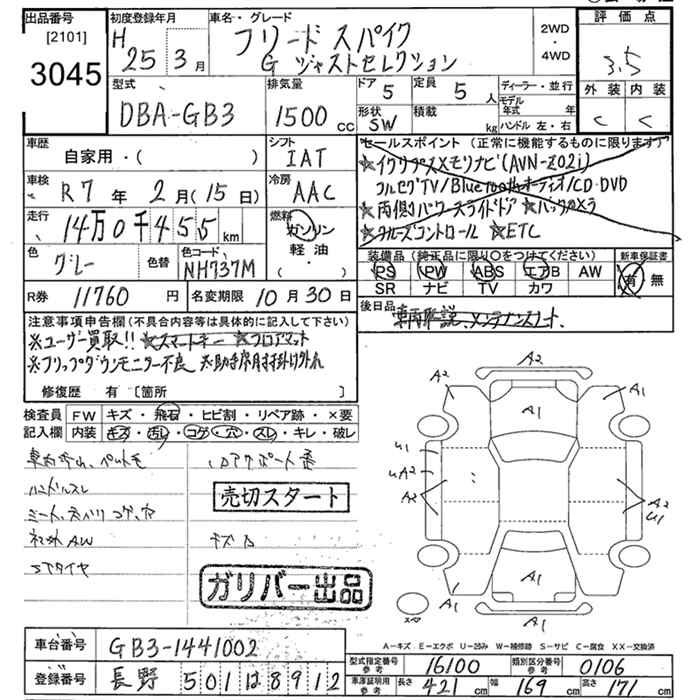 出品番号 初度登録年月 車名・グレード 評価点
[2101] H 25 3月 フリードスパイク 2WD・4WD 3.5
3045 G ジャストセレクション 外装 内装
型式 排気量 ドア 定員 ディーラー・並行 C C
DBA-GB3 1500cc 5 5人 モデル年式 年
形状 SW 積載 kg ハンドル 左・右
車歴 シフト セールスポイント(正常に機能するものに限ります)
自家用・( ) IAT ☆インターナビ(AVN-Z02i)
車検 冷房 フルセグTV/Bluetoothオーディオ/CD・DVD
R7年2月(15日) AAC ☆両側パワースライドドア ☆バックカメラ
走行 14万0千455km 燃料 ガソリン 軽油・( ) ☆クルーズコントロール ☆ETC
色 グレー 色替 色コード NH737M 装備品(純正品に限り○をつけてください) 新車保証書
PS PW ABS エアB AW 有 無
R券 11760円 名変期限 10月30日 SR ナビ TV カワ
注意事項申告欄(不具合内容等は具体的に記入して下さい) 後日品 車両取説、メンテナンスノート、
※ユーザー買取!! ※スマートキー ※フロアマット
※フリップダウンモニター不良 ※助手席肘掛け外れ
修復歴 有 [箇所 ]
検査員 FW キズ・飛石・ヒビ割・リペア跡・×要
記入欄 内装 キズ・汚レ・コゲ・穴・スレ・キレ・破レ
A2
A2 A1 A1
U1
UA2
A2 A2
U1
A1 A1
A1
スペア
ハンドルスレ
売切スタート
社外AW
STタイヤ
ガリバー出品
A-キズ E-エクボ U-凹み W-補修跡 S-サビ C-腐食 XX-交換済
車台番号 GB3-1441002 型式指定番号 参考 16100 類別区分番号 参考 0106
登録番号 長野 501 は 8912 車庫証明用 参考 長さ 421cm 幅 169cm 高さ 171cm